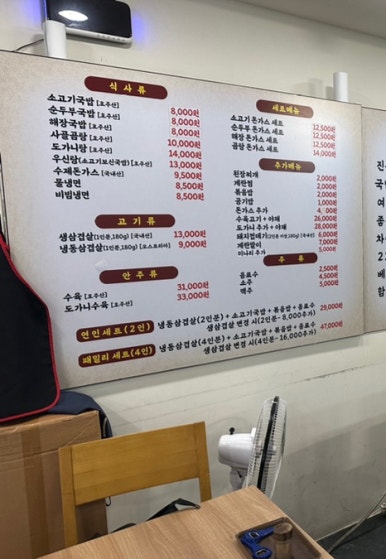 식사류
소고기국밥 [호주산] 8,000원
순두부국밥 [호주산] 8,000원
해장국밥 [호주산] 8,000원
사골곰탕 [호주산] 10,000원
도가니탕 [호주산] 14,000원
우신탕(소고기보신국밥) [호주산] 13,000원
수제돈가스 [국내산] 9,500원
물냉면 8,500원
비빔냉면 8,500원
고기류
생삼겹살(1인분,180g) [국내산] 13,000원
냉동삼겹살(1인분,180g) [오스트리아] 9,000원
안주류
수육 [호주산] 31,000원
도가니수육 [호주산] 33,000원
세트메뉴
소고기 돈가스 세트 12,500원
순두부 돈가스 세트 12,500원
해장 돈가스 세트 12,500원
곰탕 돈가스 세트 14,000원
추가메뉴
된장찌개 2,000원
계란찜 2,000원
볶음밥 2,000원
공기밥 1,000원
돈가스 추가
수육고기 + 야채 26,000원
도가니 추가 + 야채 28,000원
돼지껍데기 6,000원
계란말이 7,000원
미나리 추가 5,000원
주류
음료수 2,500원
소주 4,500원
맥주 5,000원
연인세트(2인) 냉동삼겹살(2인분) + 소고기국밥 + 볶음밥 + 음료수 29,000원
생삼겹살 변경 시(2인분- 8,000추가)
패밀리 세트(4인) 냉동삼겹살(4인분) + 소고기국밥 + 볶음밥 + 음료수 47,000원
생삼겹살 변경 시(4인분-16,000추가)